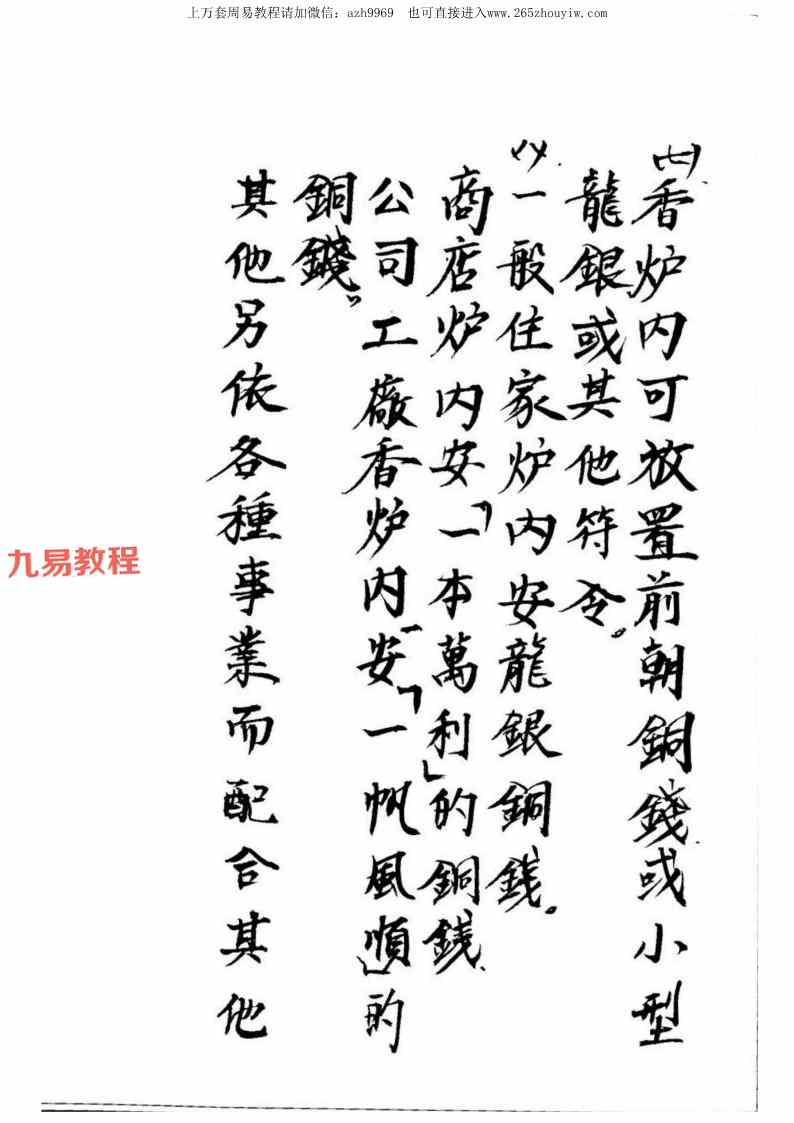 上万套周易教程请加微信：azh9969 也可直接进入www.265zhouyiw.com
(七)香炉内可放置前朝銅錢或小型
龍銀或其他符令。
(八)一般住家炉内安龍銀銅錢。
商店炉内安「一本萬利」的銅錢
公司工廠香炉内安「一帆風順」的
銅錢。
其他另依各種事業而配合其他
九易教程